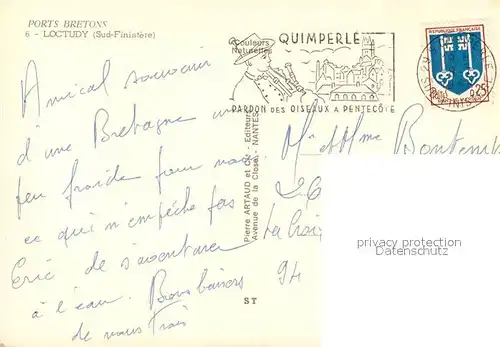 PORTS BRETONS
6 - LOCTUDY (Sud-Finistère)
Couleurs
Naturelles
QUIMPERLÉ
PARDON DES OISEAUX A PENTECÔTE
REPUBLIQUE FRANÇAISE
0,25
Amical souvenir
d'une Bretagne un
peu froide pour nous
ce qui n'empêche pas
Eric de s'aventurer
à l'eau. Bons baisers
de nous trois
Pierre ARTAUD et Cie - Editeurs
Avenue de la Close - NANTES
ST
M. et Mme Bontemps
26
La Croix
94
privacy protection
Datenschutz